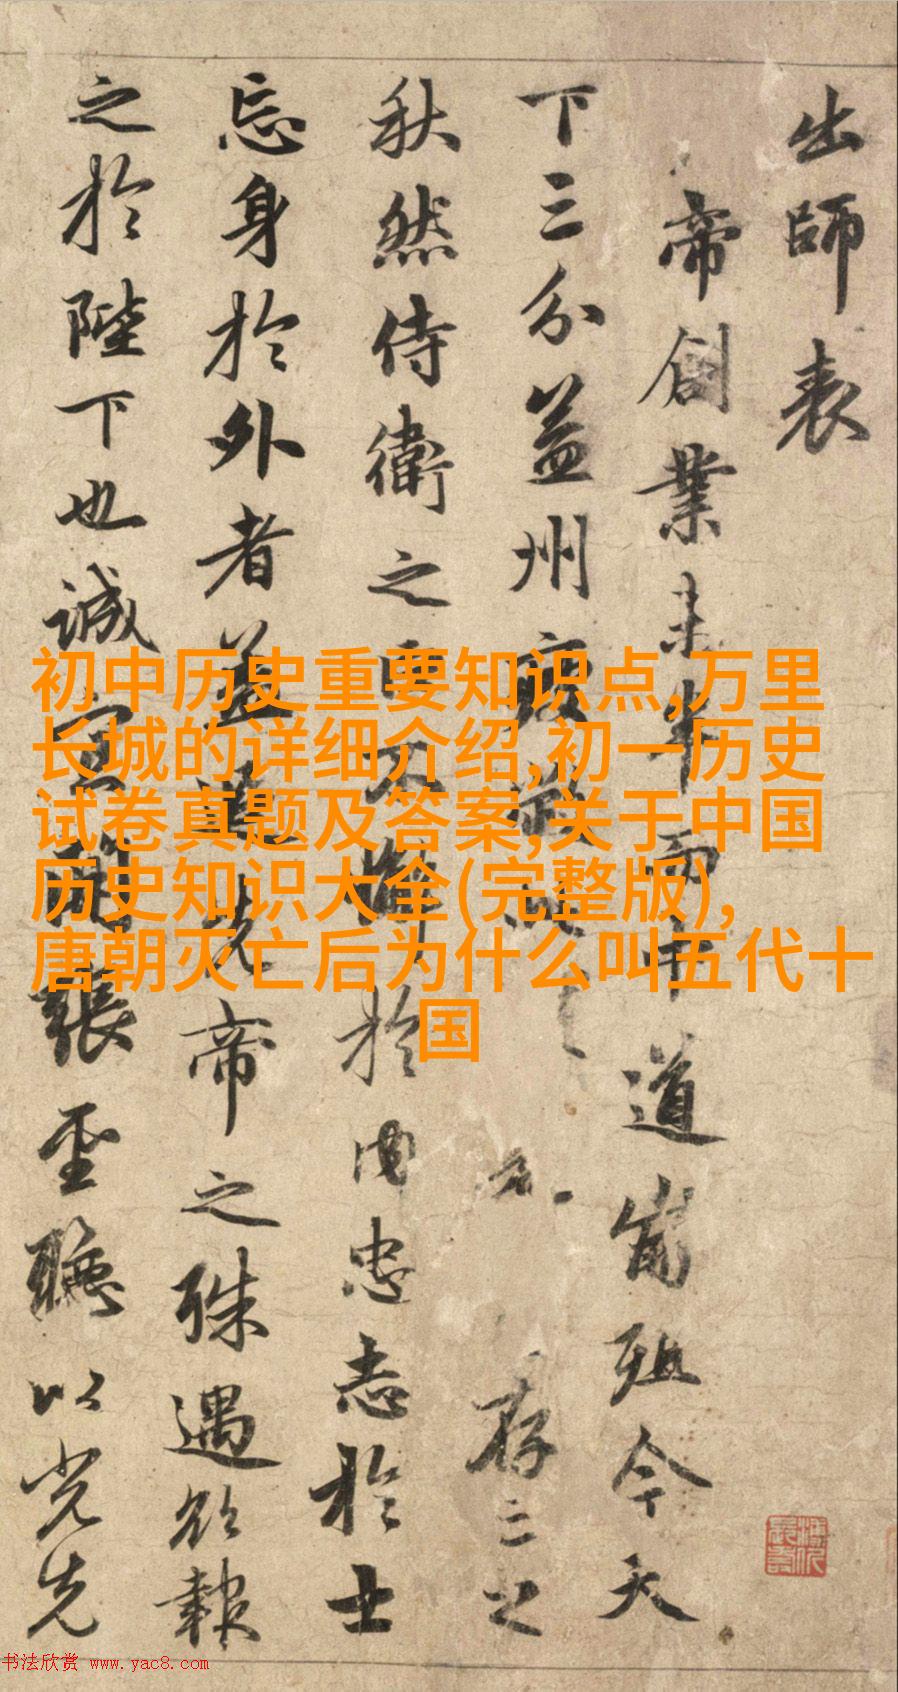 出師表
帝創業未半而中道崩殂今天
下三分益州疲敝 存 之
秋然侍衛之臣不懈於內忠志於士
忘身於外者蓋追先帝之殊遇欲報
之於陛下也誠宜開張聖聽以光先
初中历史重要知识点,万里
长城的详细介绍,初一历史
试卷真题及答案,关于中国
历史知识大全(完整版),
唐朝灭亡后为什么叫五代十
国
书法欣赏 www.yac8.com